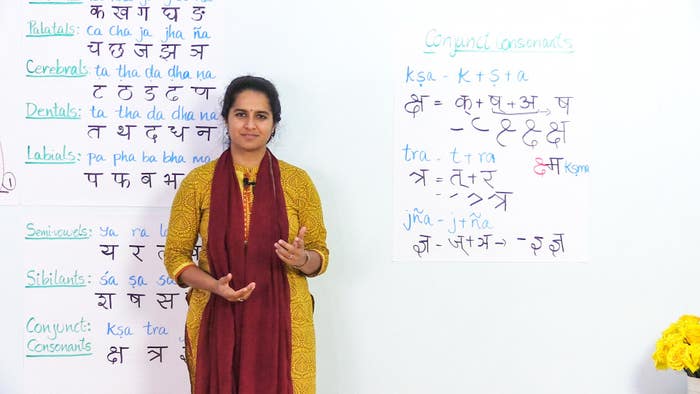 क ख ग घ ङ
Palatals: ca cha ja jha ña
च छ ज झ ञ
Cerebrals: ṭa ṭha ḍa ḍha ṇa
ट ठ ड ढ ण
Dentals: ta tha da dha na
त थ द ध न
Labials: pa pha ba bha ma
प फ ब भ
Semivowels: ya ra
य र
Sibilants: śa ṣa sa
श ष स
Conjunct: kṣa tra
Consonants
क्ष त्र
Conjunct consonants
kṣa - k + ṣ + a
क्ष = क् + ष् + अ → ष
क्ष
क्ष्म kṣma
tra - t + ra
त्र = त् + र
त्र
jña - j + ña
ज्ञ - ज् + ञ → ज्ञ
1